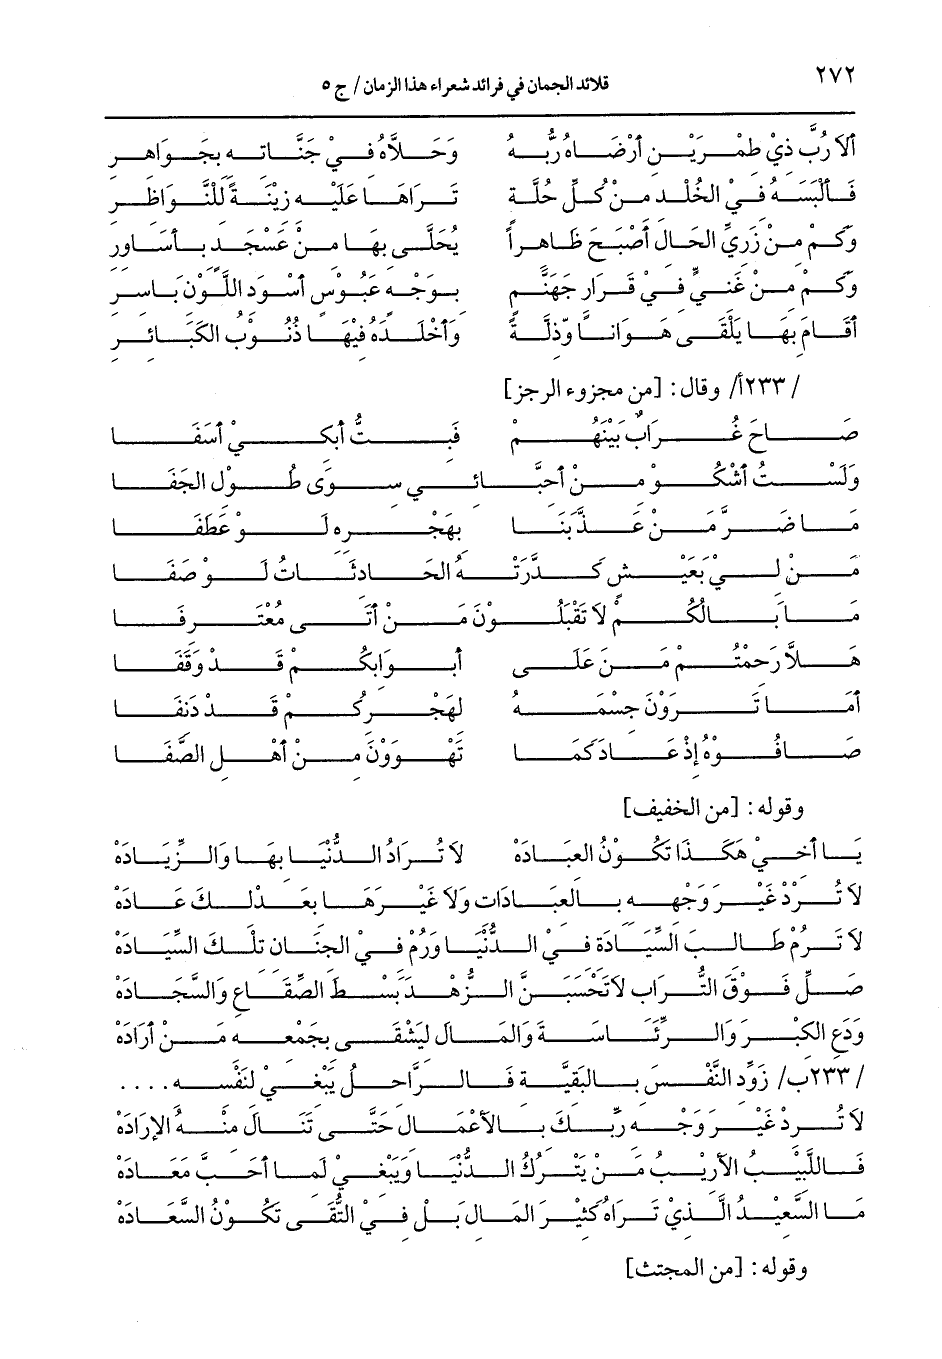 ٢٧٢
قلائد الجمان في فرائد شعراء هذا الزمان / ج ٥
ألا رُبَّ ذيْ طمْرَيْنِ أرْضَاهُ رَبُّهُ وَحَلاَّهُ فيْ جَنَّاتِهِ بجَوَاهِرِ
فَألْبَسَهُ فيْ الخُلْدِ مِنْ كُلِّ حُلَّةٍ تَرَاهَا عَلَيْهِ زِيْنَةً للنَّوَاظِرِ
وَكمْ مِنْ زَرِيِّ الحَالِ أصْبَحَ ظَاهِراً يُحَلَّى بِهَا مِنْ عَسْجَدٍ بأسَاوِرِ
وَكمْ مِنْ غَنيٍّ فيْ قَرَارِ جَهَنَّمٍ بوَجْهٍ عَبُوْسٍ أسْوَدِ اللَّوْنِ بَاسِرِ
أقَامَ بِهَا يَلْقَى هَوَاناً وَذِلَّةً وَأخْلَدَهُ فِيْهَا ذُنُوْبُ الكَبَائِرِ
/ ٢٣٣أ/ وقال: [من مجزوء الرجز]
صَاحَ غُرَابٌ بَيْنَهُمْ فَبِتُّ أبْكيْ أسَفَا
وَلَسْتُ أشْكُوْ مِنْ أحِبَّائي سِوَى طُوْلِ الجَفَا
مَا ضَرَّ مَنْ عَذَّبَنَا بِهَجْرِهِ لَوْ عَطَفَا
مَنْ لِيْ بَعَيْشٍ كَدَّرَتْهُ الحَادِثَاتُ لَوْ صَفَا
مَا بَالُكُمْ لاَ تَقْبَلُوْنَ مَنْ أتَى مُعْتَرِفَا
هَلاَّ رَحِمْتُمْ مَنْ عَلَى أبْوَابِكُمْ قَدْ وَقَفَا
أمَا تَرَوْنَ جِسْمَهُ لِهَجْرِكُمْ قَدْ دَنَفَا
صَافُوْهُ إذْ عَادَ كَمَا تَهْوَوْنَ مِنْ أهْلِ الصَّفَا
وقوله: [من الخفيف]
يَا أخيْ هَكَذَا تَكُوْنُ العِبَادَهْ لاَ تُرَادُ الدُّنْيَا بِهَا وَالزِّيَادَهْ
لاَ تُرِدْ غَيْرَ وَجْهِهِ بالعِبَادَاتِ وَلاَ غَيْرَهَا بَعَدْلِكَ عَادَهْ
لاَ تَرُمْ طَالِبَ السِّيَادَةِ فيْ الدُّنْيَا وَرُمْ فيْ الجِنَانِ تلْكَ السِّيَادَهْ
صَلِّ فَوْقَ التُّرَابِ لاَ تَحْسَبَنَّ الزُّهْدَ بَسْطَ الصِّقَاعِ وَالسَّجَادَهْ
وَدَعِ الكِبْرَ وَالرِّئَاسَةَ وَالمَالَ لِيَشْقَى بِجَمْعِهِ مَنْ أرَادَهْ
/ ٢٣٣ب/ زَوِّدِ النَّفْسَ بالبَقِيَّةِ فَالرَّاحِلُ يَبْغيْ لنَفْسِهِ . . . .
لاَ تُرِدْ غَيْرَ وَجْهِ رَبِّكَ بالأعْمَالِ حَتَّى تَنَالَ مِنْهُ الإرَادَهْ
فَاللَّبِيْبُ الأرِيْبُ مَنْ يَتْرُكُ الدُّنْيَا وَيَبْغيْ لِمَا أحَبَّ مَعَادَهْ
مَا السَّعِيْدُ الَّذيْ تَرَاهُ كَثِيْرَ المَالِ بَلْ فيْ التُّقَى تَكُوْنُ السَّعَادَهْ
وقوله: [من المجتث]